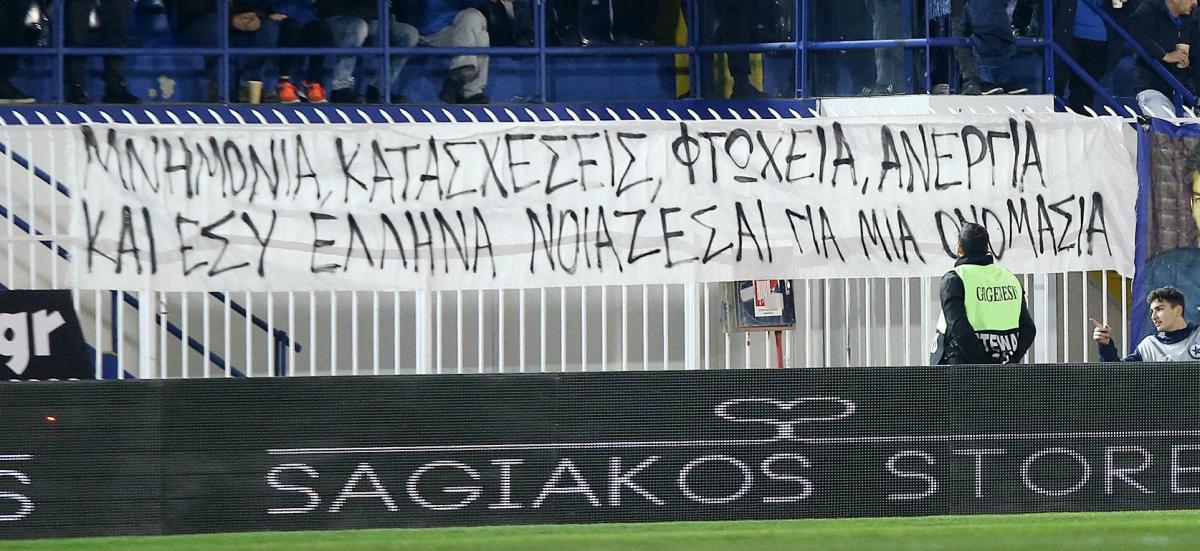 ΜΝΗΜΟΝΙΑ, ΚΑΤΑΣΧΕΣΕΙΣ, ΦΤΩΧΕΙΑ, ΑΝΕΡΓΙΑ
ΚΑΙ ΕΣΥ ΕΛΛΗΝΑ ΝΟΙΑΖΕΣΑΙ ΓΙΑ ΜΙΑ ΟΝΟΜΑΣΙΑ
gr
S SAGIAKOS STORES